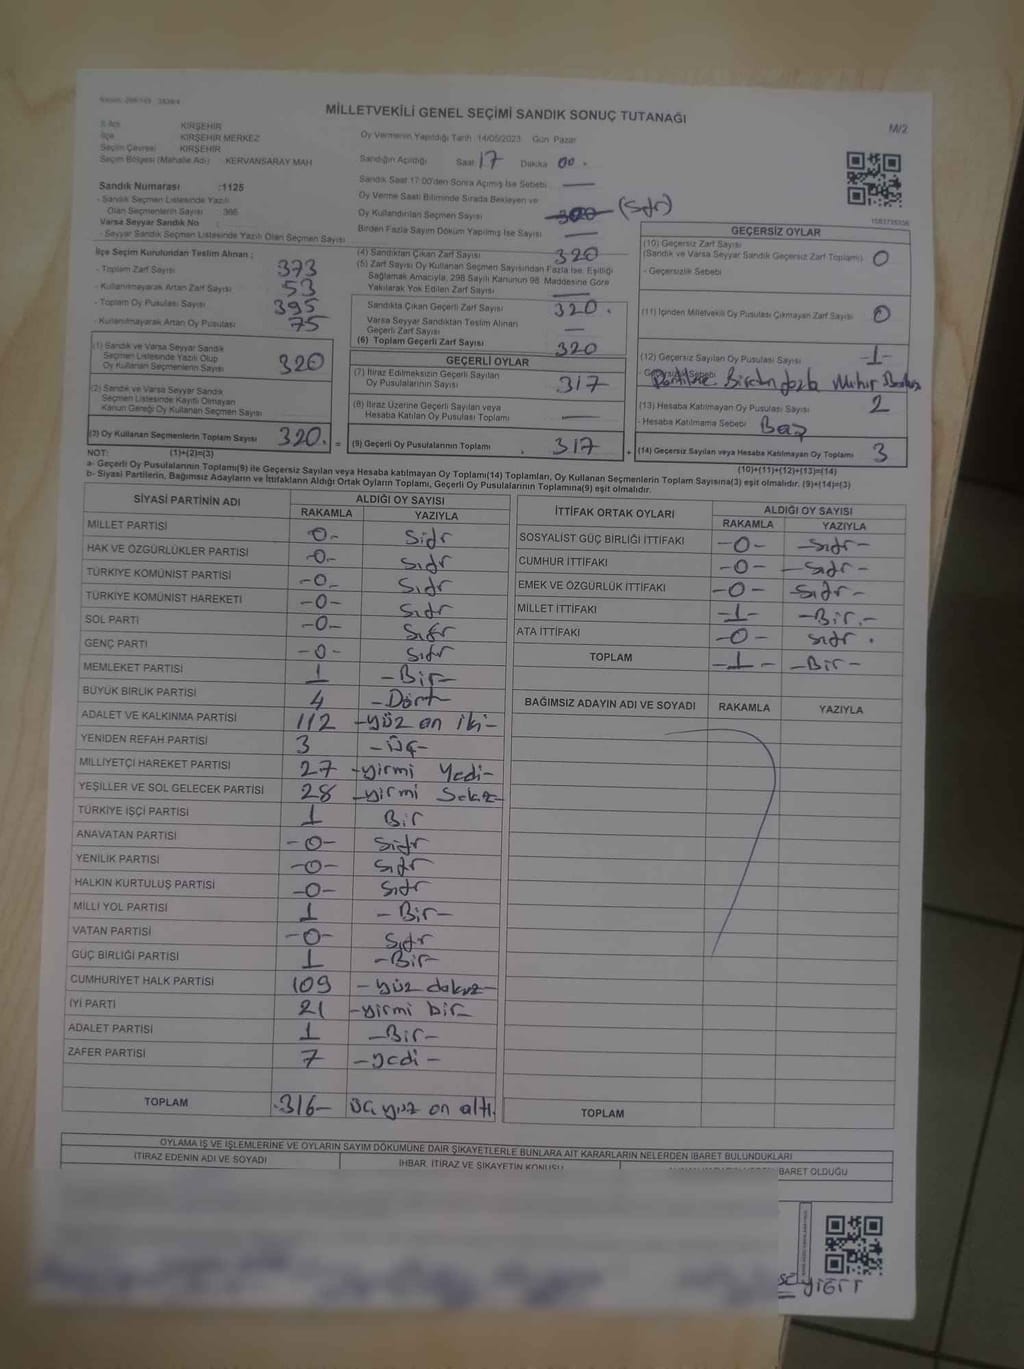 MİLLETVEKİLİ GENEL SEÇİMİ SANDIK SONUÇ TUTANAĞI
M/2
İli KIRŞEHİR
İlçe KIRŞEHİR MERKEZ
Seçim Çevresi KIRŞEHİR
Seçim Bölgesi (Mahalle Adı) : KERVANSARAY MAH
Oy Vermenin Yapıldığı Tarih :14/05/2023 Gün Pazar
Sandığın Açıldığı Saat 17 Dakika 00
Sandık Saat 17:00'den Sonra Açılmış İse Sebebi
Sandık Numarası :1125
- Sandık Seçmen Listesinde Yazılı
Olan Seçmenlerin Sayısı
Varsa Seyyar Sandık No :
- Seyyar Sandık Seçmen Listesinde Yazılı Olan Seçmen Sayısı
Oy Verme Saati Bitiminde Sırada Bekleyen ve
Oy Kullandırılan Seçmen Sayısı 320 (Sıfır)
Birden Fazla Sayım Döküm Yapılmış İse Sayısı
İlçe Seçim Kurulundan Teslim Alınan ;
- Toplam Zarf Sayısı : 373
- Kullanılmayarak Artan Zarf Sayısı : 53
- Toplam Oy Pusulası Sayısı : 395
- Kullanılmayarak Artan Oy Pusulası : 75
(1) Sandık ve Varsa Seyyar Sandık
Seçmen Listesinde Yazılı Olup
Oy Kullanan Seçmenlerin Sayısı 320
(2) Sandık ve Varsa Seyyar Sandık
Seçmen Listesinde Kayıtlı Olmayan
Kanun Gereği Oy Kullanan Seçmen Sayısı
(3) Oy Kullanan Seçmenlerin Toplam Sayısı 320.
(1)+(2)=(3)
(4) Sandıktan Çıkan Zarf Sayısı 320
(5) Zarf Sayısı Oy Kullanan Seçmen Sayısından Fazla İse, Eşitliği
Sağlamak Amacıyla, 298 Sayılı Kanunun 98. Maddesine Göre
Yakılarak Yok Edilen Zarf Sayısı
Sandıkta Çıkan Geçerli Zarf Sayısı 320.
Varsa Seyyar Sandıktan Teslim Alınan
Geçerli Zarf Sayısı
(6) Toplam Geçerli Zarf Sayısı 320
GEÇERLİ OYLAR
(7) İtiraz Edilmeksizin Geçerli Sayılan
Oy Pusulalarının Sayısı 317
(8) İtiraz Üzerine Geçerli Sayılan veya
Hesaba Katılan Oy Pusulası Toplamı
= (9) Geçerli Oy Pusulalarının Toplamı 317
GEÇERSİZ OYLAR
(10) Geçersiz Zarf Sayısı
(Sandık ve Varsa Seyyar Sandık Geçersiz Zarf Toplamı) 0
- Geçersizlik Sebebi
(11) İçinden Milletvekili Oy Pusulası Çıkmayan Zarf Sayısı 0
(12) Geçersiz Sayılan Oy Pusulası Sayısı -1-
Birden fazla Mühür
(13) Hesaba Katılmayan Oy Pusulası Sayısı 2
- Hesaba Katılmama Sebebi Boş
+ (14) Geçersiz Sayılan veya Hesaba Katılmayan Oy Toplamı 3
(10)+(11)+(12)+(13)=(14)
NOT:
a- Geçerli Oy Pusulalarının Toplamı(9) ile Geçersiz Sayılan veya Hesaba katılmayan Oy Toplamı(14) Toplamları, Oy Kullanan Seçmenlerin Toplam Sayısına(3) eşit olmalıdır. (9)+(14)=(3)
b- Siyasi Partilerin, Bağımsız Adayların ve İttifakların Aldığı Ortak Oyların Toplamı, Geçerli Oy Pusulalarının Toplamına(9) eşit olmalıdır.
SİYASİ PARTİNİN ADI ALDIĞI OY SAYISI
RAKAMLA YAZIYLA
MİLLET PARTİSİ -0- Sıfır
HAK VE ÖZGÜRLÜKLER PARTİSİ -0- Sıfır
TÜRKİYE KOMÜNİST PARTİSİ -0- Sıfır
TÜRKİYE KOMÜNİST HAREKETİ -0- Sıfır
SOL PARTİ -0- Sıfır
GENÇ PARTİ -0- Sıfır
MEMLEKET PARTİSİ 1 -Bir-
BÜYÜK BİRLİK PARTİSİ 4 -Dört-
ADALET VE KALKINMA PARTİSİ 112 -yüz on iki-
YENİDEN REFAH PARTİSİ 3 -Üç-
MİLLİYETÇİ HAREKET PARTİSİ 27 -yirmi Yedi-
YEŞİLLER VE SOL GELECEK PARTİSİ 28 -yirmi Sekiz-
TÜRKİYE İŞÇİ PARTİSİ 1 Bir
ANAVATAN PARTİSİ -0- Sıfır
YENİLİK PARTİSİ -0- Sıfır
HALKIN KURTULUŞ PARTİSİ -0- Sıfır
MİLLİ YOL PARTİSİ 1 -Bir-
VATAN PARTİSİ -0- Sıfır
GÜÇ BİRLİĞİ PARTİSİ 1 -Bir-
CUMHURİYET HALK PARTİSİ 109 -yüz dokuz-
İYİ PARTİ 21 -yirmi bir-
ADALET PARTİSİ 1 -Bir-
ZAFER PARTİSİ 7 -yedi-
TOPLAM 316- Üç yüz on altı.
İTTİFAK ORTAK OYLARI ALDIĞI OY SAYISI
RAKAMLA YAZIYLA
SOSYALİST GÜÇ BİRLİĞİ İTTİFAKI -0- -Sıfır-
CUMHUR İTTİFAKI -0- -Sıfır-
EMEK VE ÖZGÜRLÜK İTTİFAKI -0- -Sıfır-
MİLLET İTTİFAKI -1- -Bir.-
ATA İTTİFAKI -0- Sıfır.
TOPLAM -1- -Bir-
BAĞIMSIZ ADAYIN ADI VE SOYADI RAKAMLA YAZIYLA
TOPLAM
OYLAMA İŞ VE İŞLEMLERİNE VE OYLARIN SAYIM DÖKÜMÜNE DAİR ŞİKAYETLERLE BUNLARA AİT KARARLARIN NELERDEN İBARET BULUNDUKLARI
İTİRAZ EDENİN ADI VE SOYADI İHBAR, İTİRAZ VE ŞİKAYETİN KONUSU İBARET OLDUĞU